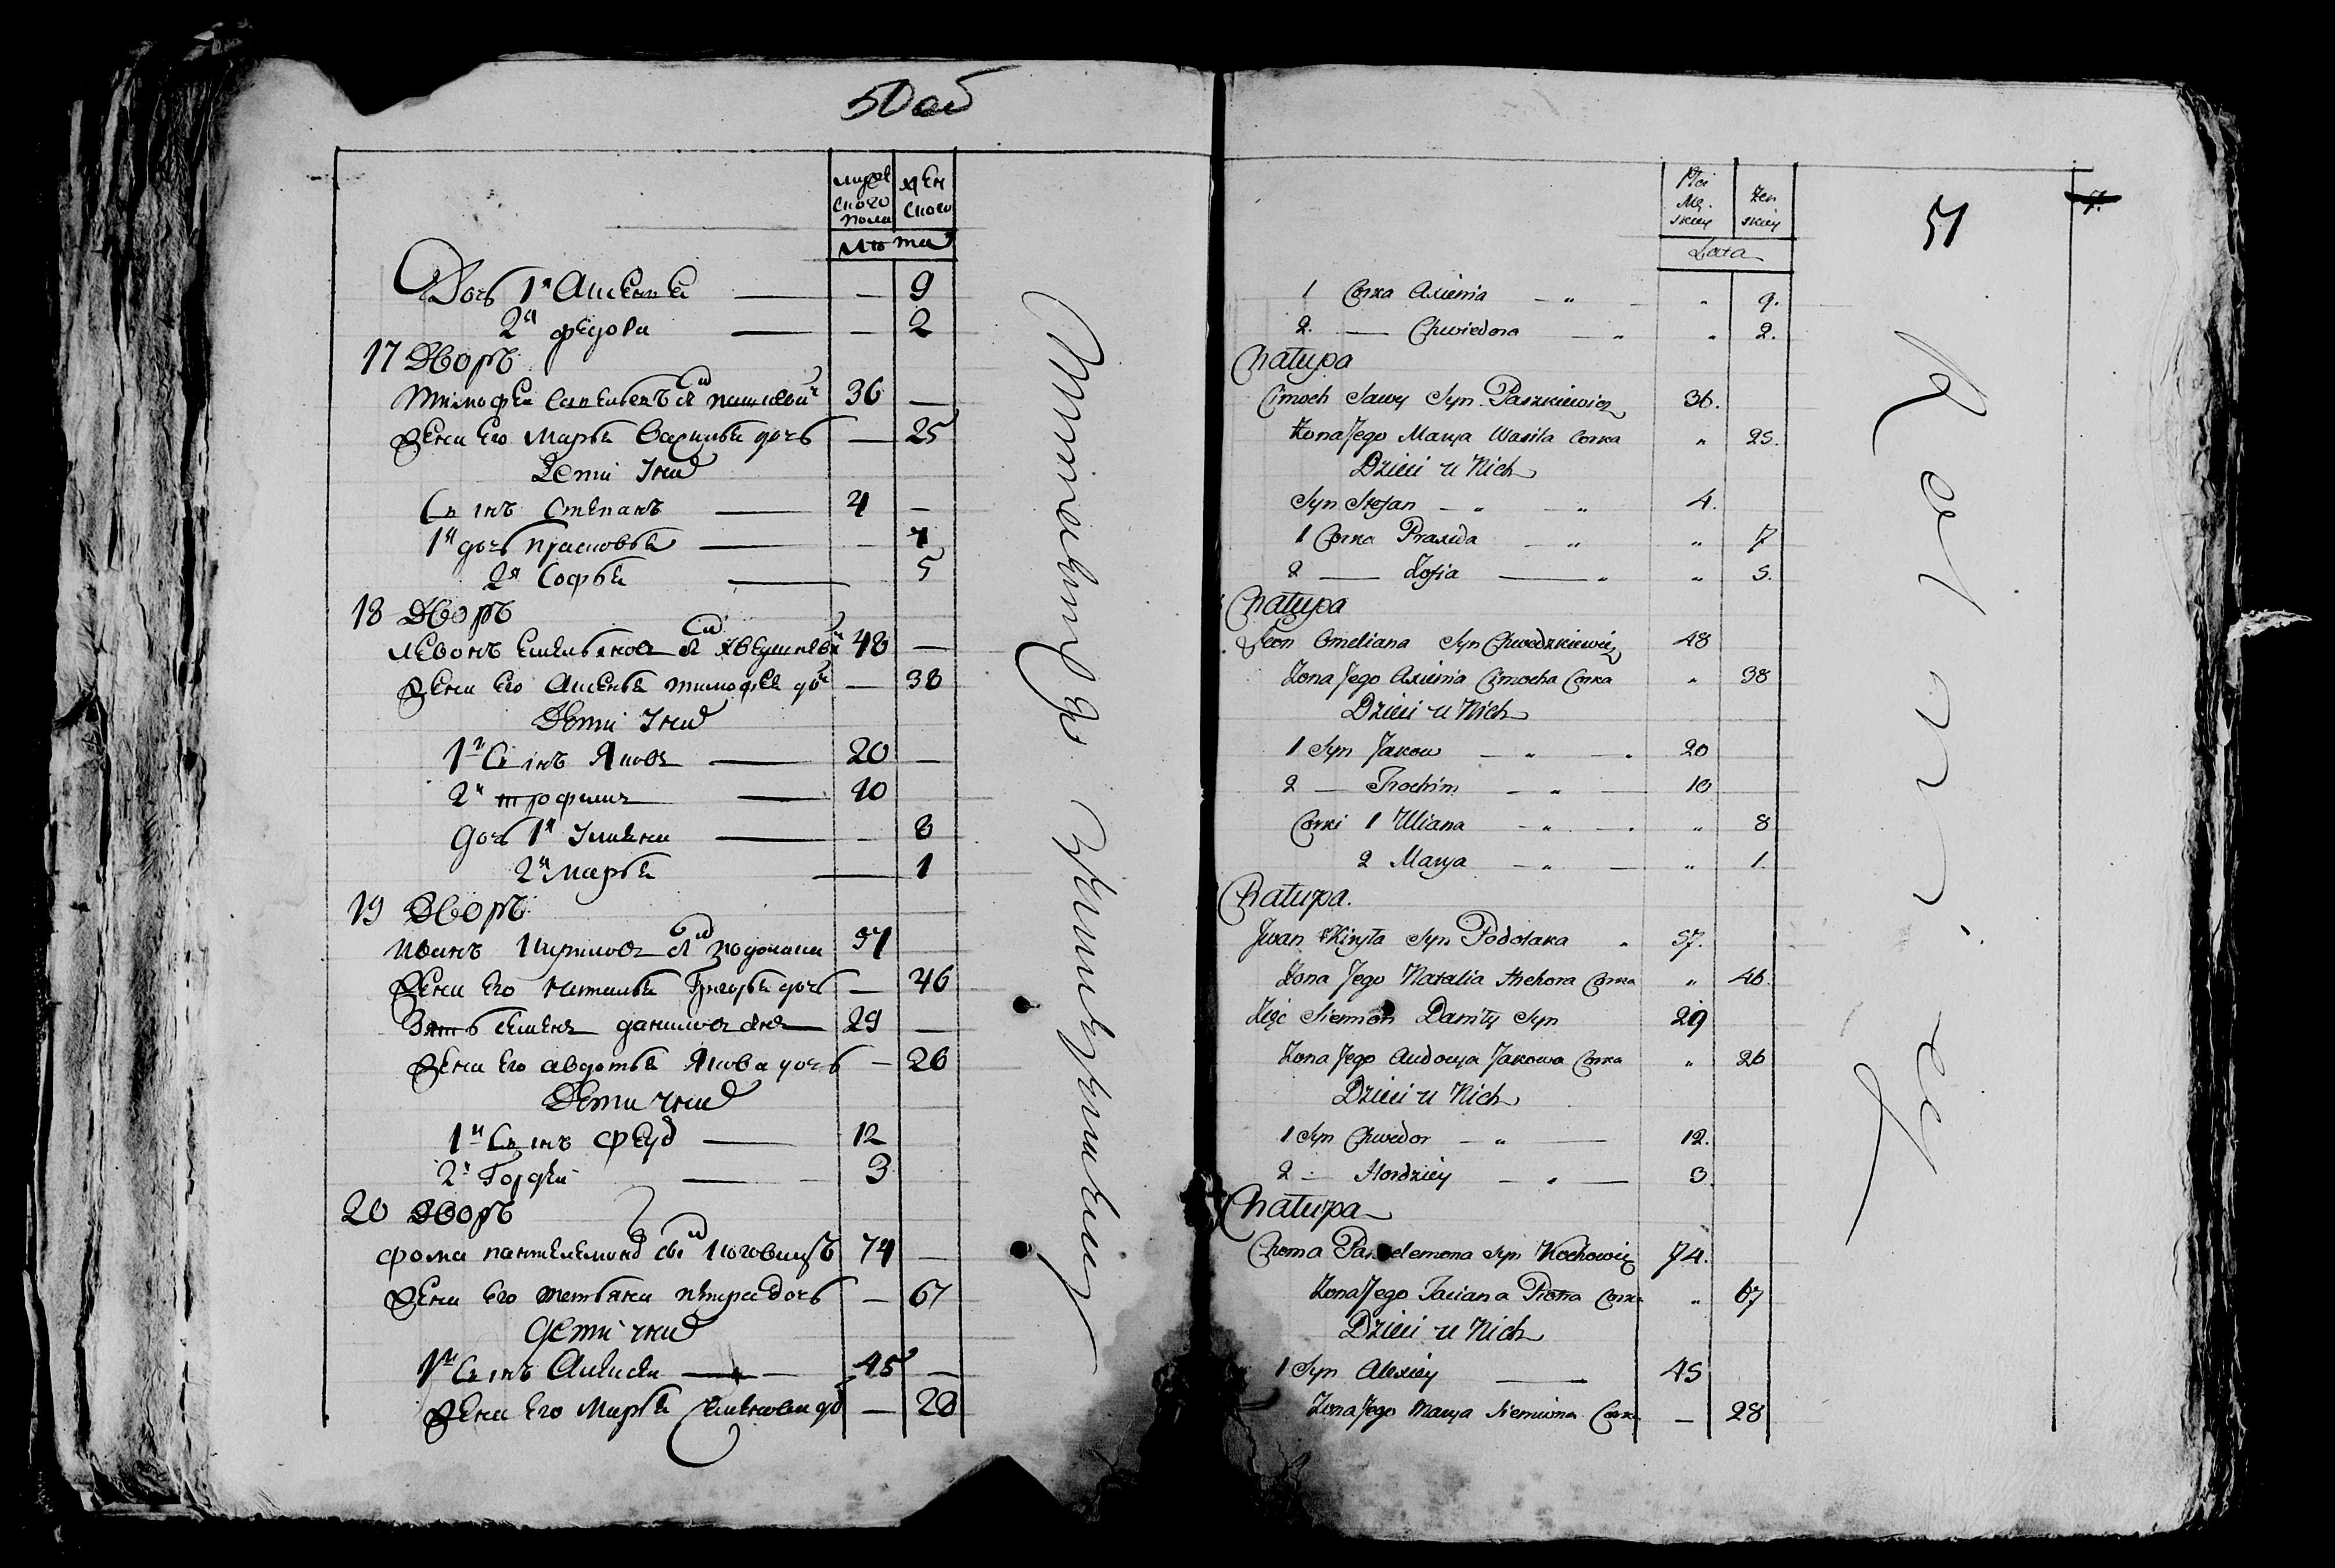 50 об
мужескаго пола женскаго
Лѣта
Дочь 1я Аксенья — 9
2я Федора — 2
17 Дворъ
Тимофей Савельевъ сынъ Пашкевич 36 —
Жена Его Марья Василья дочь — 25
Дети Унихъ
Сынъ Степанъ — 4 —
1я дочь Прасковья — 7
2я Софья — 5
18 Дворъ
Левонъ Емельяновъ сынъ 48 —
Жена Его Аксенья Тимофея доч — 38
Дети Унихъ
1й Сынъ Яковъ — 20 —
2й Трофимъ — 10
дочь 1я Ульяна — 8
2я Марья — 1
19 Дворъ
Иванъ Кириловъ сынъ Подолака 57
Жена Его Наталья Григорья дочь — 46
Зять Семенъ Даниловъ сынъ 29 —
Жена Его Авдотья Якова дочь — 26
Дети Унихъ
1й Сынъ Феуд — 12
2й Гордей — 3
20 Дворъ
Фома Пантелемонов сынъ Коховичъ 74 —
Жена Его Тетьяна Петра дочь — 67
Дети Унихъ
1й Сынъ Алексей — 45 —
Жена Его Марья Семенова до — 28
51
Płci Mę. skiey Żen skiey
Lata
1 Corka Axienia — " — " 9.
2. — Chwiedora — " " 2.
Chałupa
Cimoch Sawy Syn Paszkiewicz 36.
Żona Jego Marya Wasila Corka " 25.
Dzieci u Nich
Syn Stefan — " — " 4.
1 Corka Praxeda — " " 7
2 — Zofia — " " 5.
Chałupa
Leon Omeliana Syn Chwedzkiewicz 48
Żona Jego Axienia Cimocha Corka " 38
Dzieci u Nich
1 Syn Jakow — " — . 20
2 — Trochim — " — 10
Corki 1 Uliana — " — . " 8
2 Marya — " — " 1.
Chałupa.
Iwan Kiryła Syn Podolaka " 57.
Żona Jego Natalia Hrehora Corka " 46.
Zięc Siemion Daniły Syn 29
Żona Jego Audocya Jakowa Corka " 26
Dzieci u Nich
1 Syn Chwedor — " — 12.
2 — Hordziey — " — 3.
Chałupa
Choma Pantelemona Syn Kochowicz 74.
Żona Jego Taciana Piotra Corka " 67
Dzieci u Nich
1 Syn Alexiey — 45
Żona Jego Marya Siemiona Corka — 28